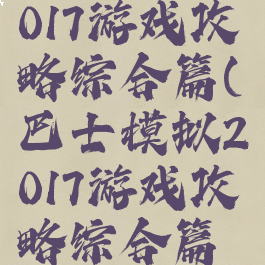 017游戏攻
略综合篇(
巴士模拟2
017游戏攻
略综合篇